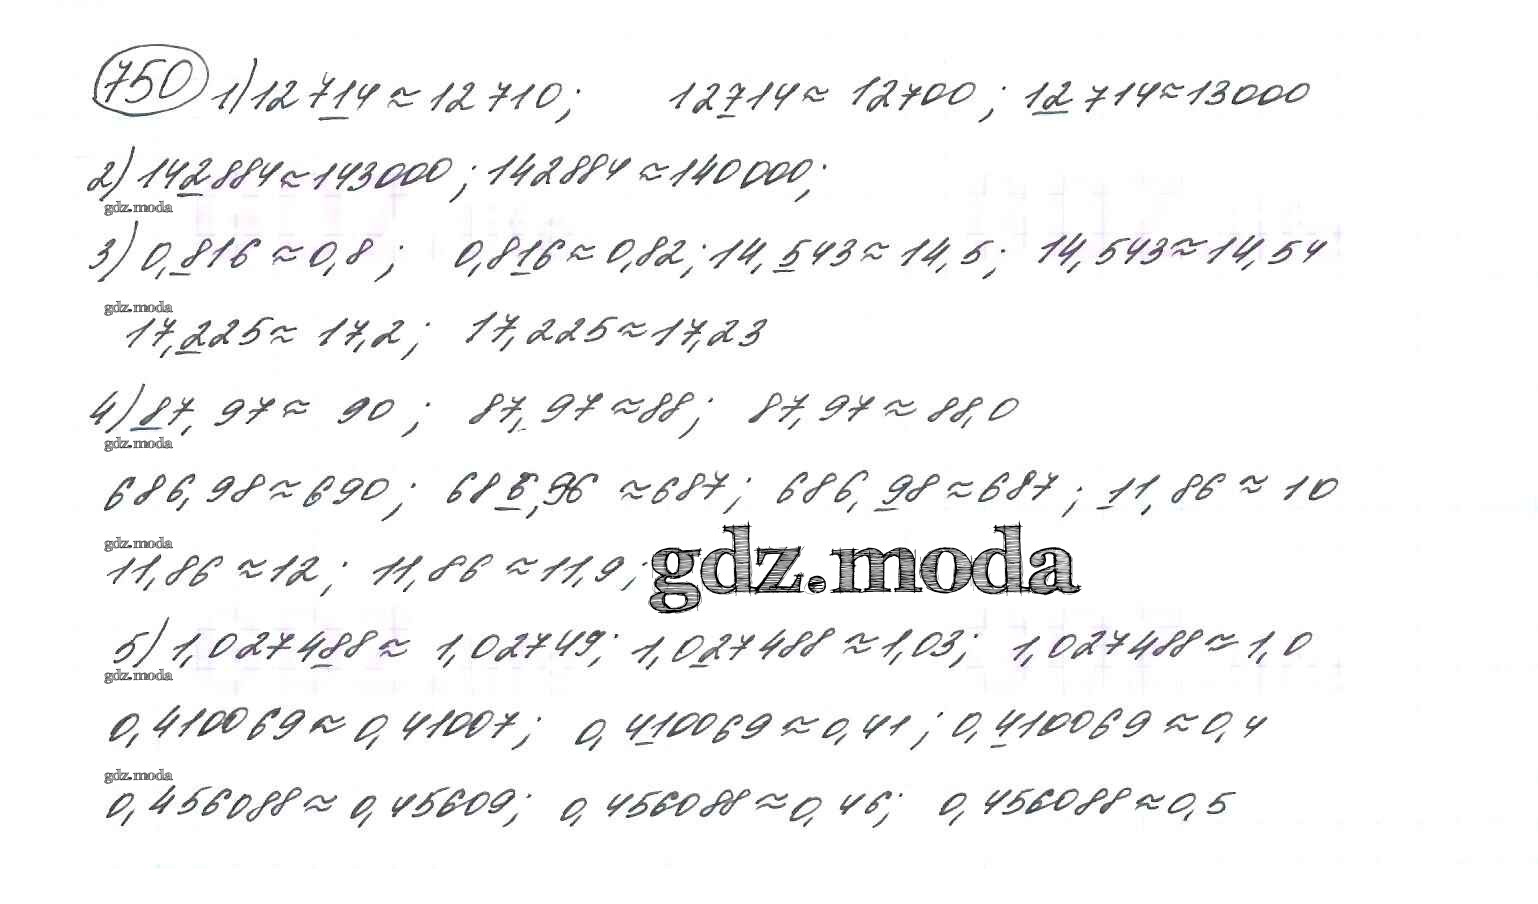 750 1) 12 714 ≈ 12 710; 12714 ≈ 12700; 12 714 ≈ 13000
2) 142884 ≈ 143000; 142884 ≈ 140000;
gdz.moda
3) 0,816 ≈ 0,8; 0,816 ≈ 0,82; 14,543 ≈ 14,5; 14,543 ≈ 14,54
gdz.moda
17,225 ≈ 17,2; 17,225 ≈ 17,23
4) 87,97 ≈ 90; 87,97 ≈ 88; 87,97 ≈ 88,0
gdz.moda
686,98 ≈ 690; 686,96 ≈ 687; 686,98 ≈ 687; 11,86 ≈ 10
gdz.moda
11,86 ≈ 12; 11,86 ≈ 11,9; gdz.moda
5) 1,027488 ≈ 1,02749; 1,027488 ≈ 1,03; 1,027488 ≈ 1,0
gdz.moda
0,410069 ≈ 0,41007; 0,410069 ≈ 0,41; 0,410069 ≈ 0,4
gdz.moda
0,456088 ≈ 0,45609; 0,456088 ≈ 0,46; 0,456088 ≈ 0,5